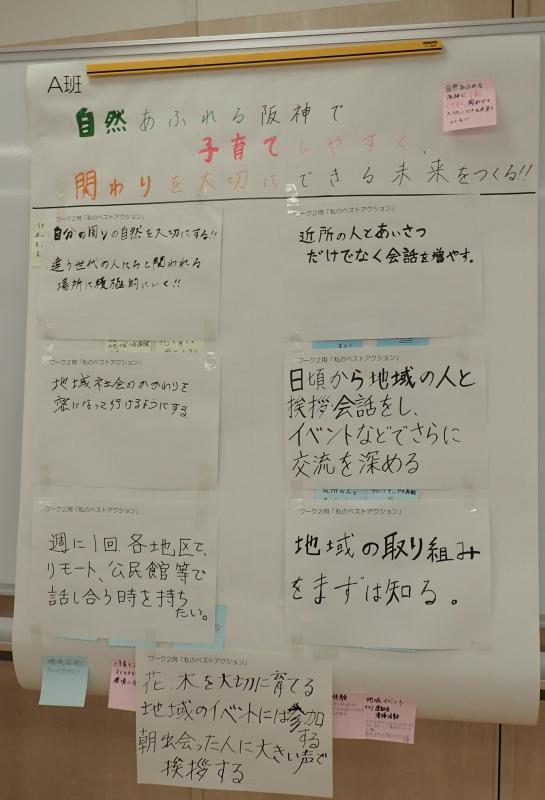 A班
自然あふれる阪神で
子育てしやすく、
関わりを大切にできる未来をつくる!!
自然あふれる
阪神で、子育て
しやすく、関わりを
大切にできる未来を
つくる!!
ワーク2用「私のベストアクション」
自分の周りの自然を大切にする!!
違う世代の人たちと関われる
場所に積極的にいく!!
近所の人とあいさつ
だけでなく会話を増やす。
ワーク2用「私のベストアクション」
地域社会のかかわりを
密になって行けるようにする
ワーク2用「私のベストアクション」
日頃から地域の人と
挨拶・会話をし、
イベントなどでさらに
交流を深める
ワーク2用「私のベストアクション」
週に1回、各地区で、
リモート、公民館等で
話し合う時を持ち
たい。
近所の人と
ワーク2用「私のベストアクション」
地域の取り組み
をまずは知る。
ワーク2用「私のベストアクション」
花、木を大切に育てる
地域のイベントには参加
する
朝出会った人に大きい声で
挨拶する。
体験
地域イベント
清掃活動